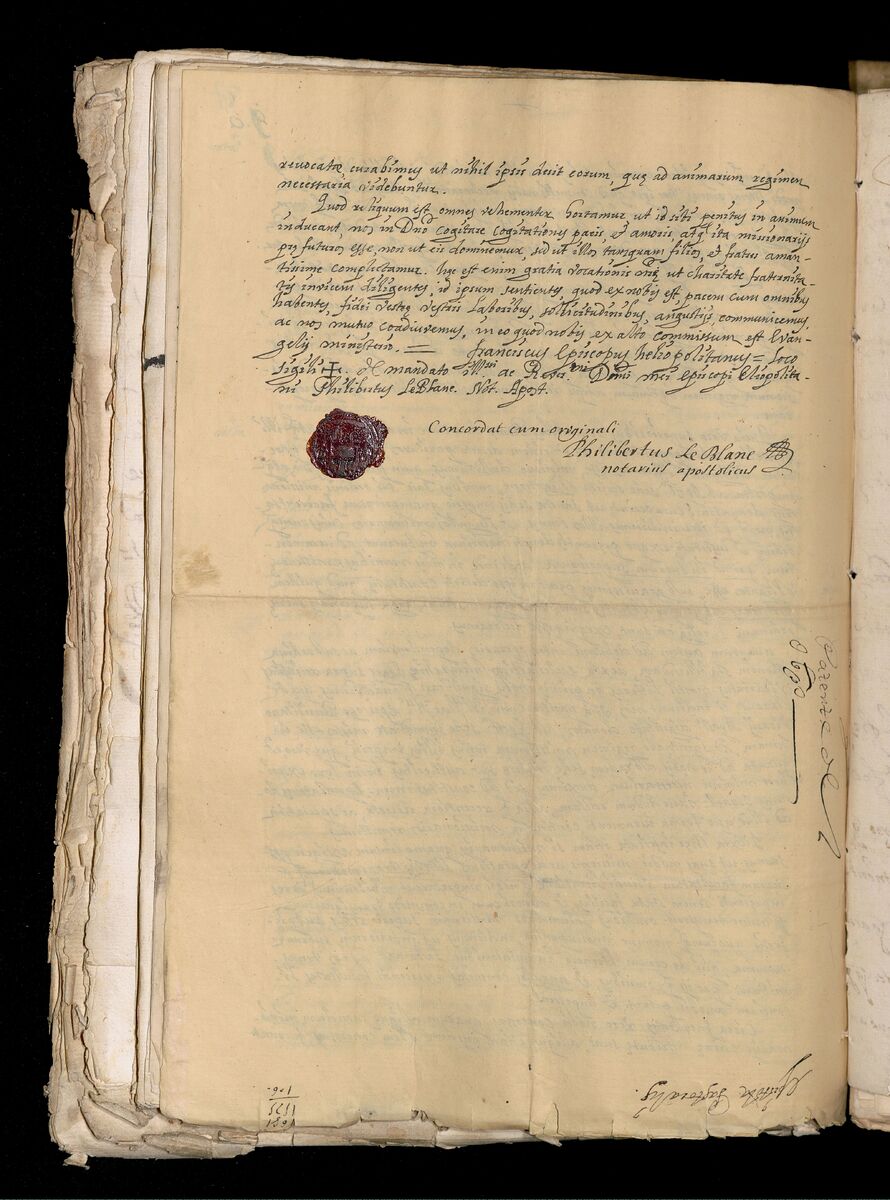 revocatæ curabimus ut nihil ipsis desit eorum, quę ad animarum regimen
necessaria videbuntur.
Quod reliquum est omnes vehementer hortamur ut id sibi penitus in animum
inducant, nos in Dnō cogitare cogitationes pacis et amoris atq̨ ita missionarijs
profuturos esse, non ut eis dominemur, sed ut illos tanquam filios, et fratres aman-
tissime complectamur. hæc est enim gratia vocationis nrę ut charitate fraternita-
tis invicem diligentes, id ipsum sentientes, quod ex nobis est, pacem cum omnibus
habentes, fidei vestrę vestris laboribus, sollicitudinibus, angustijs, communicemus,
ac nos mutuo coadiuvemus, in eo quod nobis ex alto commissum est Evan-
gelij ministerio. = franciscus Episcopus heliopolitanus = loco
sigilli ✝. de mandato ill.mi ac Rever.mi Domi mei Episcopi Eliopolita-
ni Philibertus LeBlanc. Not. Apost.
Concordat cum originali
Philibertus Le Blanc
notarius apostolicus
Epistola Pastoralis.
1681
1575
106